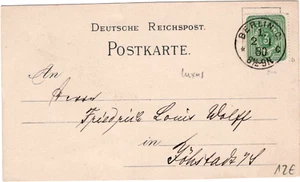 DEUTSCHE REICHSPOST.
POSTKARTE.
BERLIN, C
80
An
Herrn
Friedrich Louis Wolff
in
Jöhstadt i/S
12E